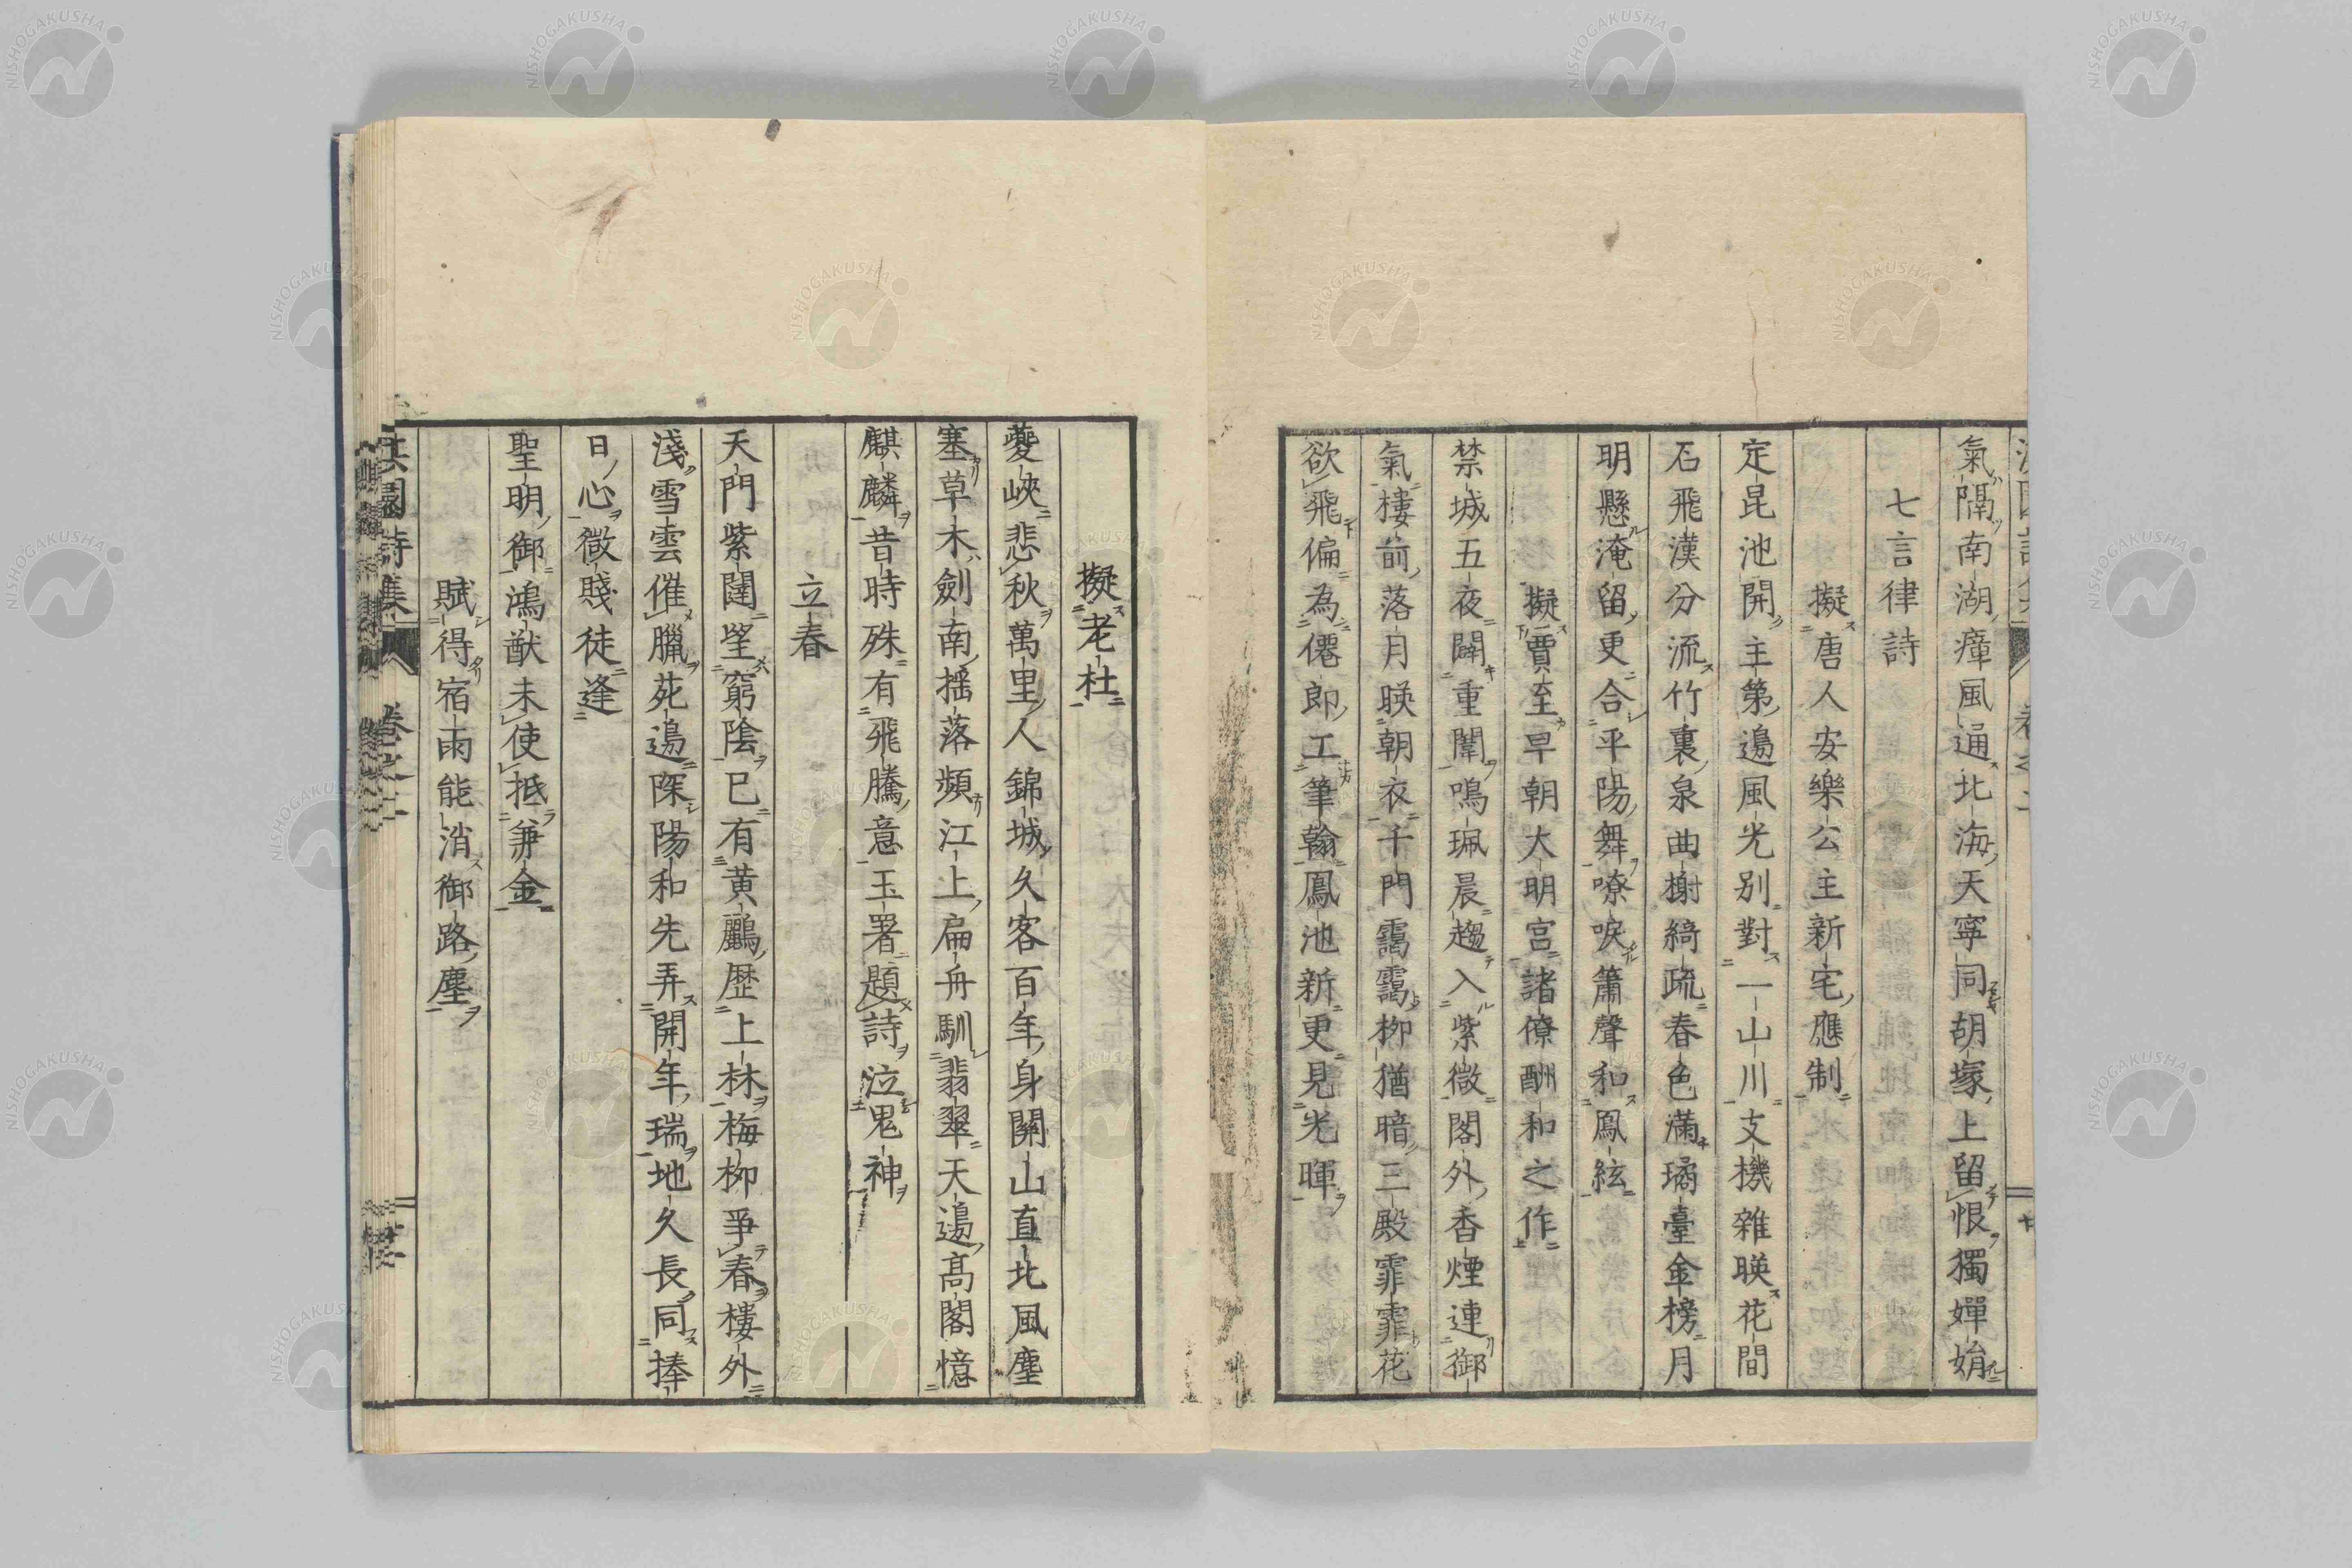 氣隔南湖瘴風通北海天寧同胡塚上留恨獨嬋娟
七言律詩
擬唐人安樂公主新宅應制
定昆池開主第邊風光別對一山川支機雜映花間
石飛漢分流竹裏泉曲榭綺疏春色滿璚臺金榜月
明懸淹留更合平陽舞嘹唳簫聲和鳳絃
擬賈至早朝大明宮諸僚酬和之作
禁城五夜闢重闈鳴珮晨趨入紫微閣外香煙連御
氣樓前落月映朝衣千門靄靄柳猶暗三殿霏霏花
欲飛偏為僊郎工筆翰鳳池新更見光暉
擬老杜
夔峽悲秋萬里人錦城久客百年身關山直北風塵
塞草木劍南搖落頻江上扁舟馴翡翠天邊高閣憶
麒麟昔時殊有飛騰意玉署題詩泣鬼神
立春
天門紫闥望窮陰已有黃鸝歷上林梅柳爭春樓外
淺雪雲催臘苑邊深陽和先弄開年瑞地久長同捧
日心微賤徒逢
聖明御鴻猷未使抵兼金
賦得宿雨能消御路塵
淇園詩集 卷之二